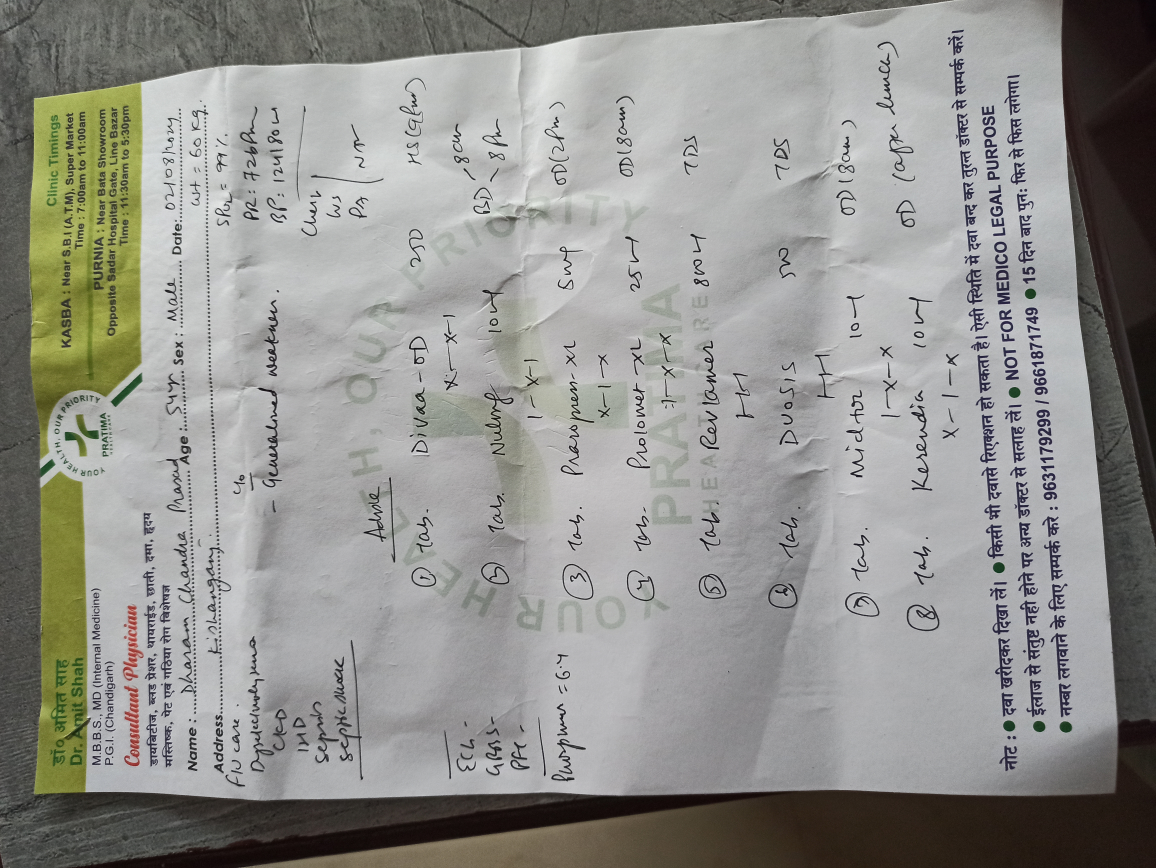 डॉ० अमित साह
Dr. Amit Shah
M.B.B.S., MD (Internal Medicine)
P.G.I. (Chandigarh)
Consultant Physician
डायबिटीज, ब्लड प्रेशर, थायराईड, छाती, दमा, हृदय
मस्तिष्क, पेट एवं गठिया रोग विशेषज्ञ
YOUR HEALTH, OUR PRIORITY
PRATIMA
HEALTHCARE
Clinic Timings
KASBA : Near S.B.I (A.T.M), Super Market
Time : 7:00am to 11:00am
PURNIA : Near Bata Showroom
Opposite Sadar Hospital Gate, Line Bazar
Time : 11:30am to 5:30pm
Name : Dharam Chandra Prasad Age : 54yr Sex : Male Date: 02/08/2024
Address Kishanganj WT = 60 Kg
SPO2 = 99%
PR: 72bpm
BP: 124/80
Chest
PA NAD
F/U case.
CKD
IHD
Sepsis
Septic shock
c/o
- Generalised weakness.
Advise
ECG -
GRBS -
① Tab. Divaa-OD 250 HS (9pm)
x-x-1
② Tab. BD 8am
8pm
1-x-1
③ Tab. 5mg OD (2pm)
x-1-x
④ Tab. Prolomet-XL 25 OD (8am)
1-x-x
⑤ Tab. Revlamer 800 TDS
1-1-1
⑥ Tab. DUOSIS 500 TDS
1-1-1
⑦ Tab. OD (8am)
1-x-x
⑧ Tab. Kerendia 10 OD (after lunch)
x-1-x
YOUR HEALTH, OUR PRIORITY
PRATIMA
HEALTHCARE
नोट : ● दवा खरीदकर दिखा लें। ● किसी भी दवा से रिएक्शन हो सकता है। ऐसी स्थिति में दवा बन्द कर तुरन्त डॉक्टर से सम्पर्क करें।
● ईलाज से संतुष्ट नही होने पर अन्य डॉक्टर से सलाह लें। ● NOT FOR MEDICO LEGAL PURPOSE
● नम्बर लगवाने के लिए सम्पर्क करे : 9631179299 / 9661871749 ● 15 दिन बाद पुनः फिर से फिस लगेगा।